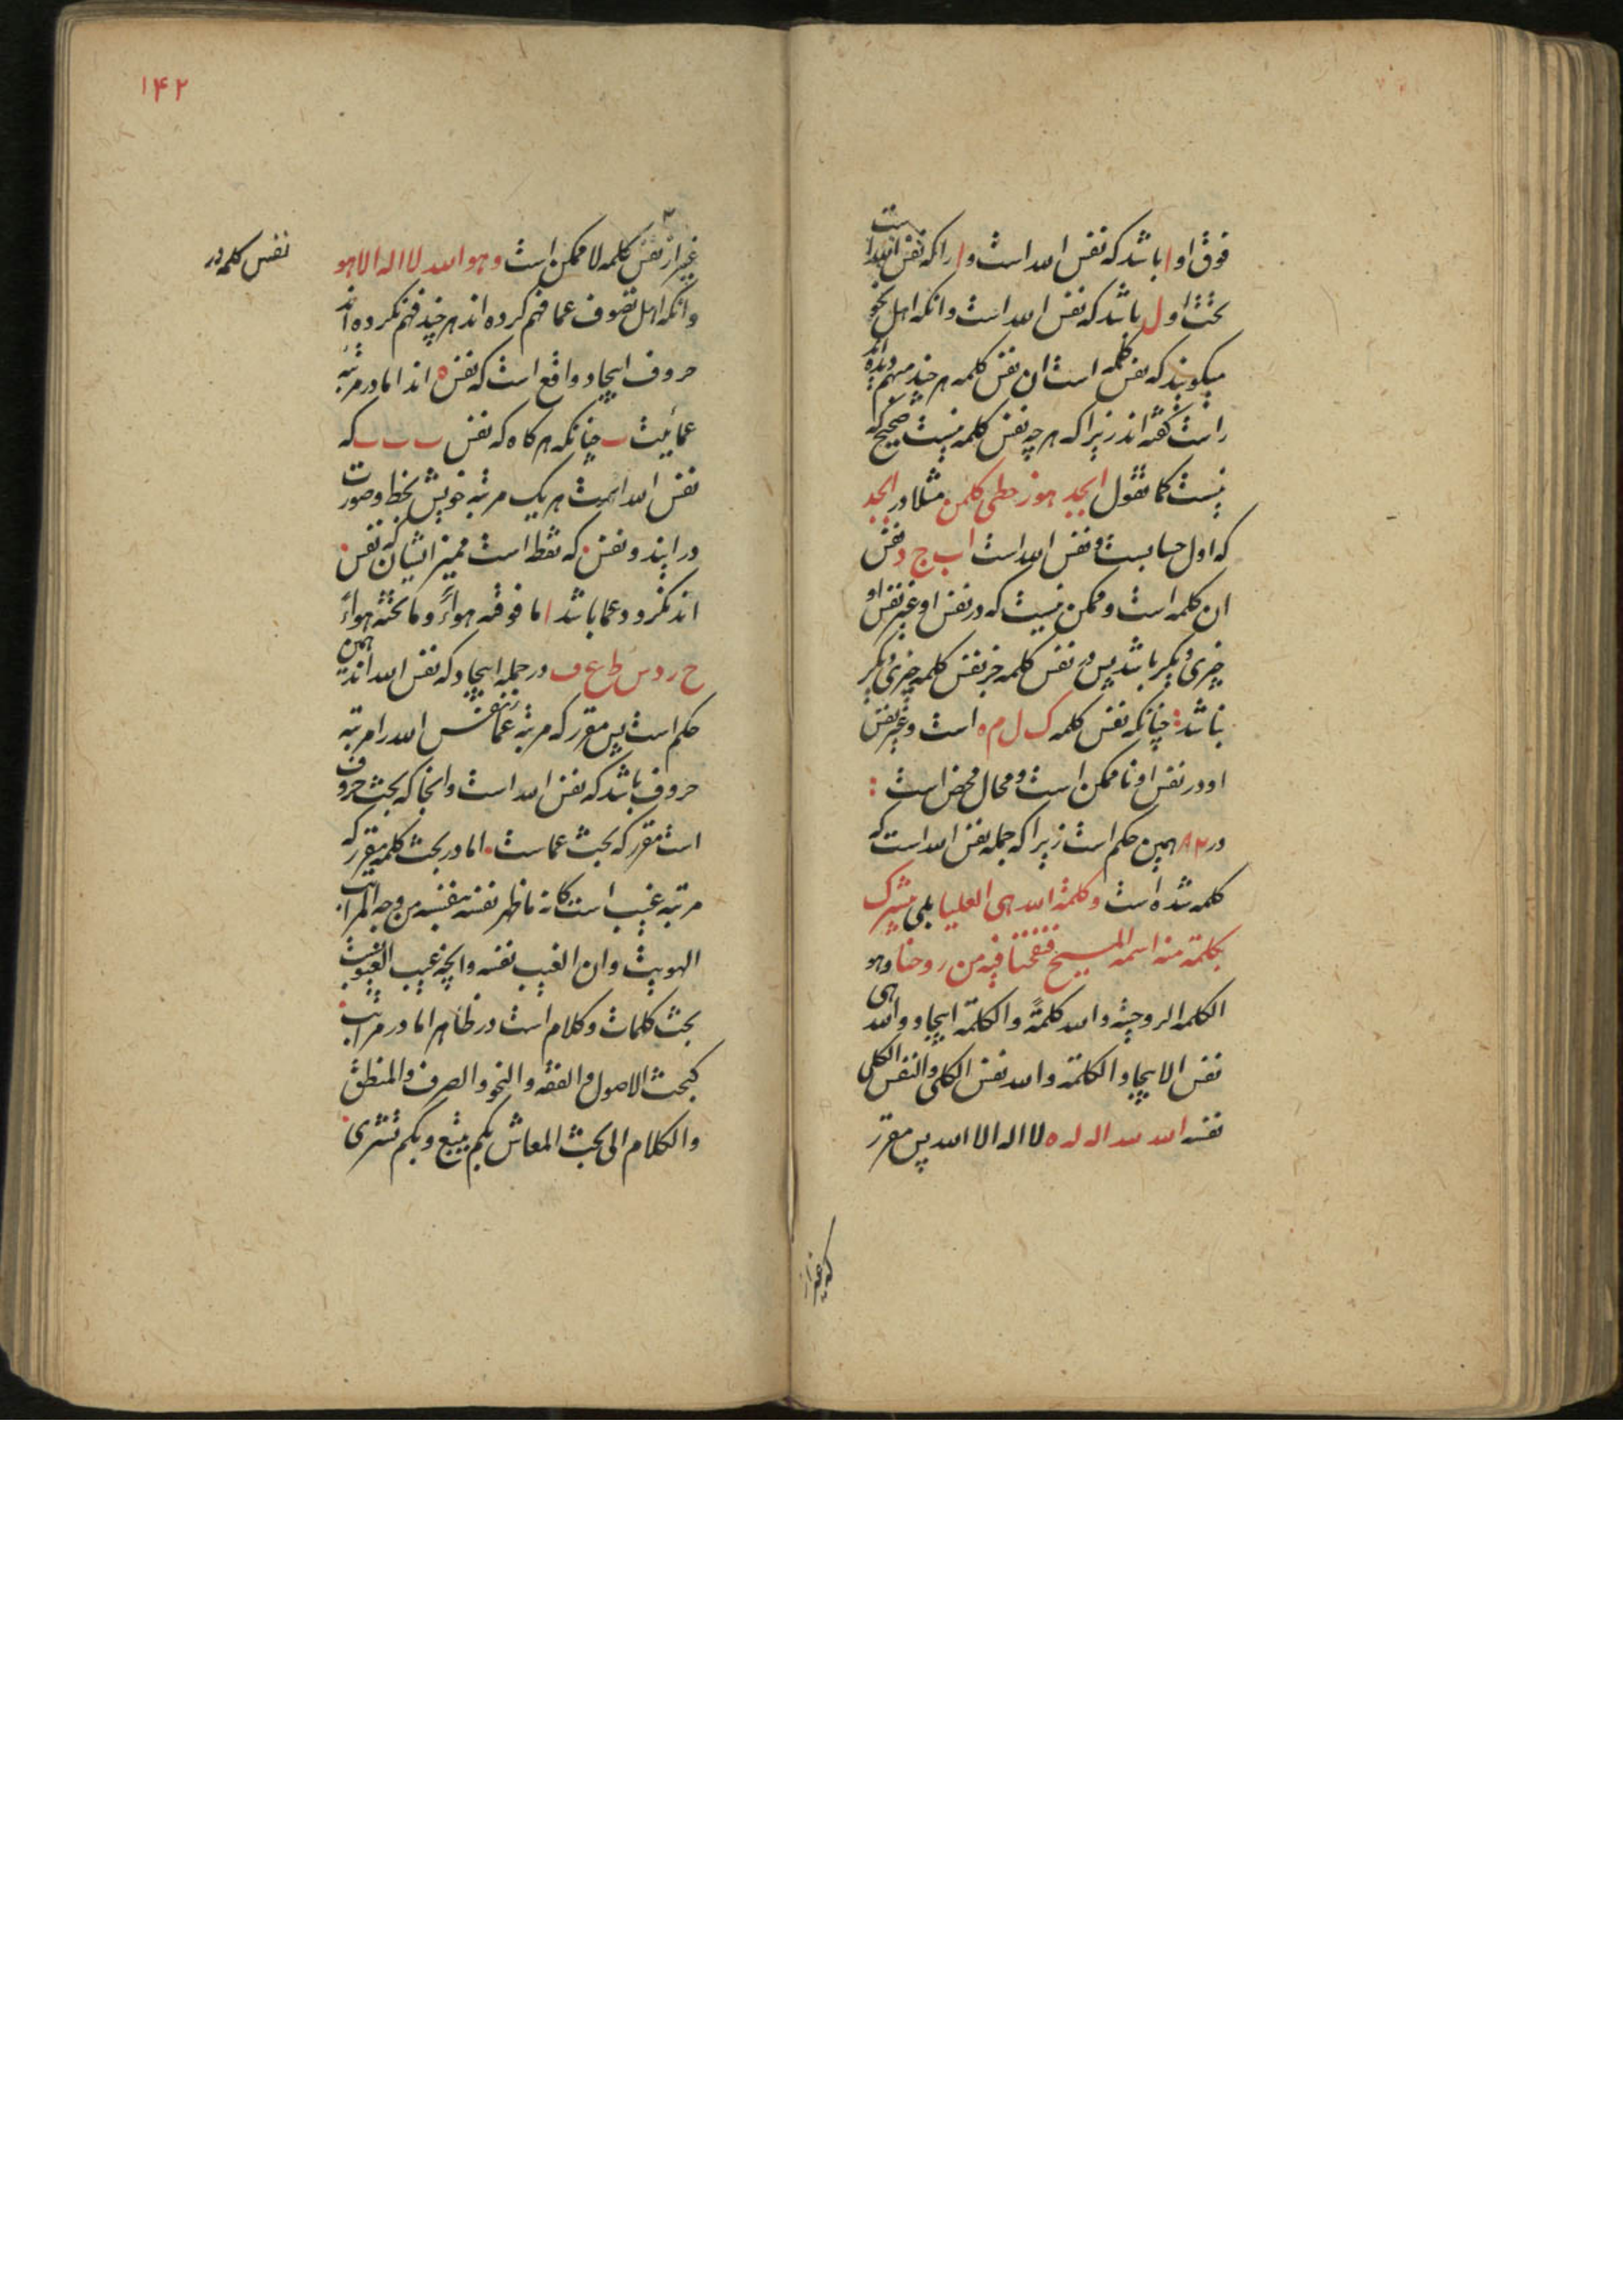 فوق او ا باشد که نفس الله است و ا را که نفس الله است
تحت او ل باشد که نفس الله است و انکه اهل نحو
میکویند که نفس کلمه است ان نفس کلمه هر چند مبهم دیده اند
راست کفته اند زیرا که هر چه نفس کلمه نیست صحیح که
نیست کما نقول ابجد هوز حطی کلمن مثلا در ابجد
که اول حسابست و نفس الله است ا ب ج د نفس
ان کلمه است و ممکن نیست که در نفس او غیر نفس او
چیزی دیکر باشد پس در نفس کلمه جز نفس کلمه چیزی دیکر
نباشد: چنانکه نفس کلمه ک ل م ه است و غیر نفس
او در نفس او ناممکن است و محال محض است :
در ۸۲ همین حکم است زیرا که جمله نفس الله است که
کلمه شده است و کلمة الله هی العلیا بلی یبشرک
بکلمة منه اسمه المسیح فنفخنا فیه من روحنا و هو
الکلمة الروحیة و الله کلمة و الکلمة ایجاد و الله هی
نفس الایجاد و الکلمة و الله نفس الکلی و النفس الکلی
نفسه الله لله اله له ه لا اله الا الله پس مقرر
که غیر از
۱۴۲
غیر از نفس کلمه لا ممکن است و هو الله لا اله الا هو
نفس کلمه در
و انکه اهل تصوف عما فهم کرده اند هر چند فهم نکرده اند
حروف ایجاد واقع است که نفس ه اند اما در مرتبه
عمائیت چنانکه هر کاه که نفس ٮ ٮ ٮ که
نفس الله است هر یک مرتبه خویش بخط و صورت
در ایند و نفس . که نقطه است ممیز ایشان که نفس .
اند نکرود عما باشد اما فوقه هواءً و ما تحته هواءً
ح ر د س ط ع ف در جمله ایجاد که نفس الله اند همین
حکم است پس مقرر که مرتبه عما نفس الله را مرتبه
حروف باشد که نفس الله است و انجا که بحث حروف
است مقرر که بحث عماست . اما در بحث کلمه مقرر که
مرتبه غیب است کانه ما ظهر نفسه بنفسه من وجه المراتب
الهویت و ان الغیب نفسه و انچه غیب الغیوبیت
بحث کلمات و کلام است در ظاهر اما در مراتب
کبحث الاصول و الفقه و النحو و الصرف و المنطق
و الکلام الی بحث المعاش بکم یبیع و بکم تشری